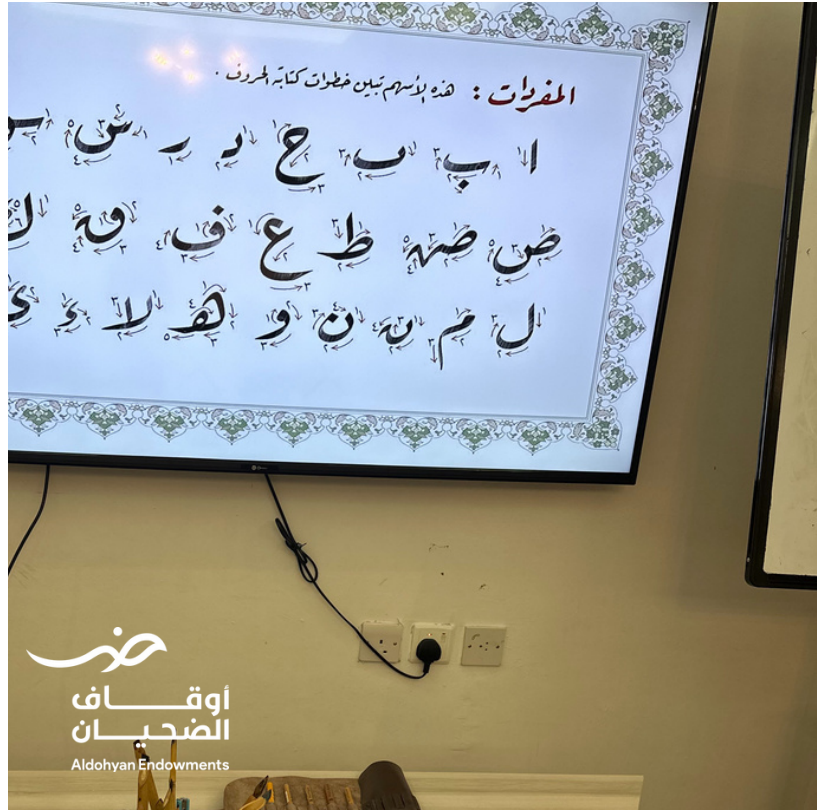 المفردات : هذه الأسهم تبين خطوات كتابة الحروف .
ا ب ب ح د ر س
ص صہ ط ع ف ق ك
ل م ن ن و ه لا ء ي
أوقاف
الضحيان
Aldohyan Endowments